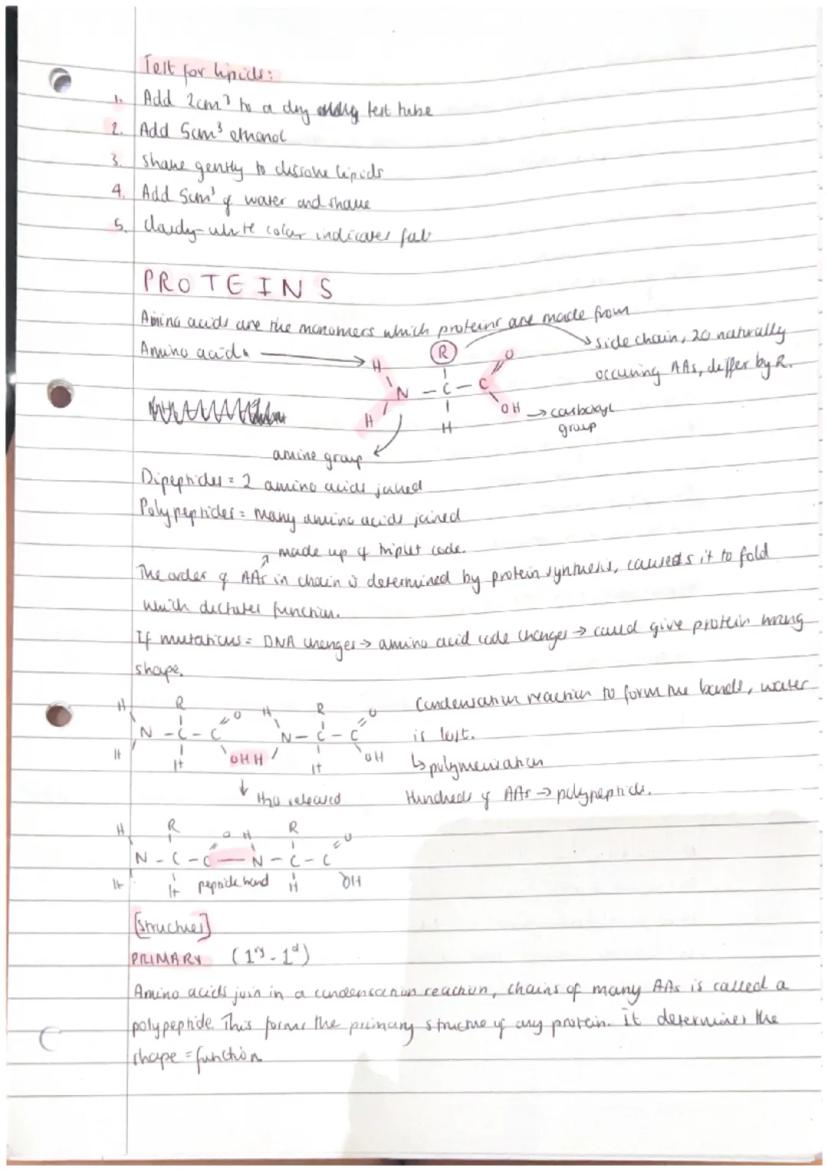 Test for lipids:
1. Add 2cm³ to a dry test tube
2. Add 5cm³ ethanol
3. Shake gently to dissolve lipids
4. Add 5cm³ of water and shake
5. Cloudy-white colour indicates fat
PROTEINS
Amino acids are the monomers which proteins are made from
Amino acid. → H R O side chain, 20 naturally
N - C - C occuring AAs, differ by R.
H H OH → carboxyl
group
amine group
Dipeptides = 2 amino acids joined
Polypeptides = Many amino acids joined
made up of triplet code.
The order of AAs in chain is determined by protein synthesis, causes it to fold
which dictates function.
If mutations = DNA changes → amino acid code changes → could give protein wrong
shape.
H R O H R O Condensation reaction to form the bonds, water
N - C - C N - C - C is lost.
H H OH H H OH ↳ polymerisation
↓ H2O released Hundreds of AAs → polypeptide.
H R O H R O
N - C - C — N - C - C
H H peptide bond H OH
[Structures]
PRIMARY (1ry - 1°)
Amino acids join in a condensation reaction, chains of many AAs is called a
polypeptide. This forms the primary structure of any protein. It determines the
shape = function